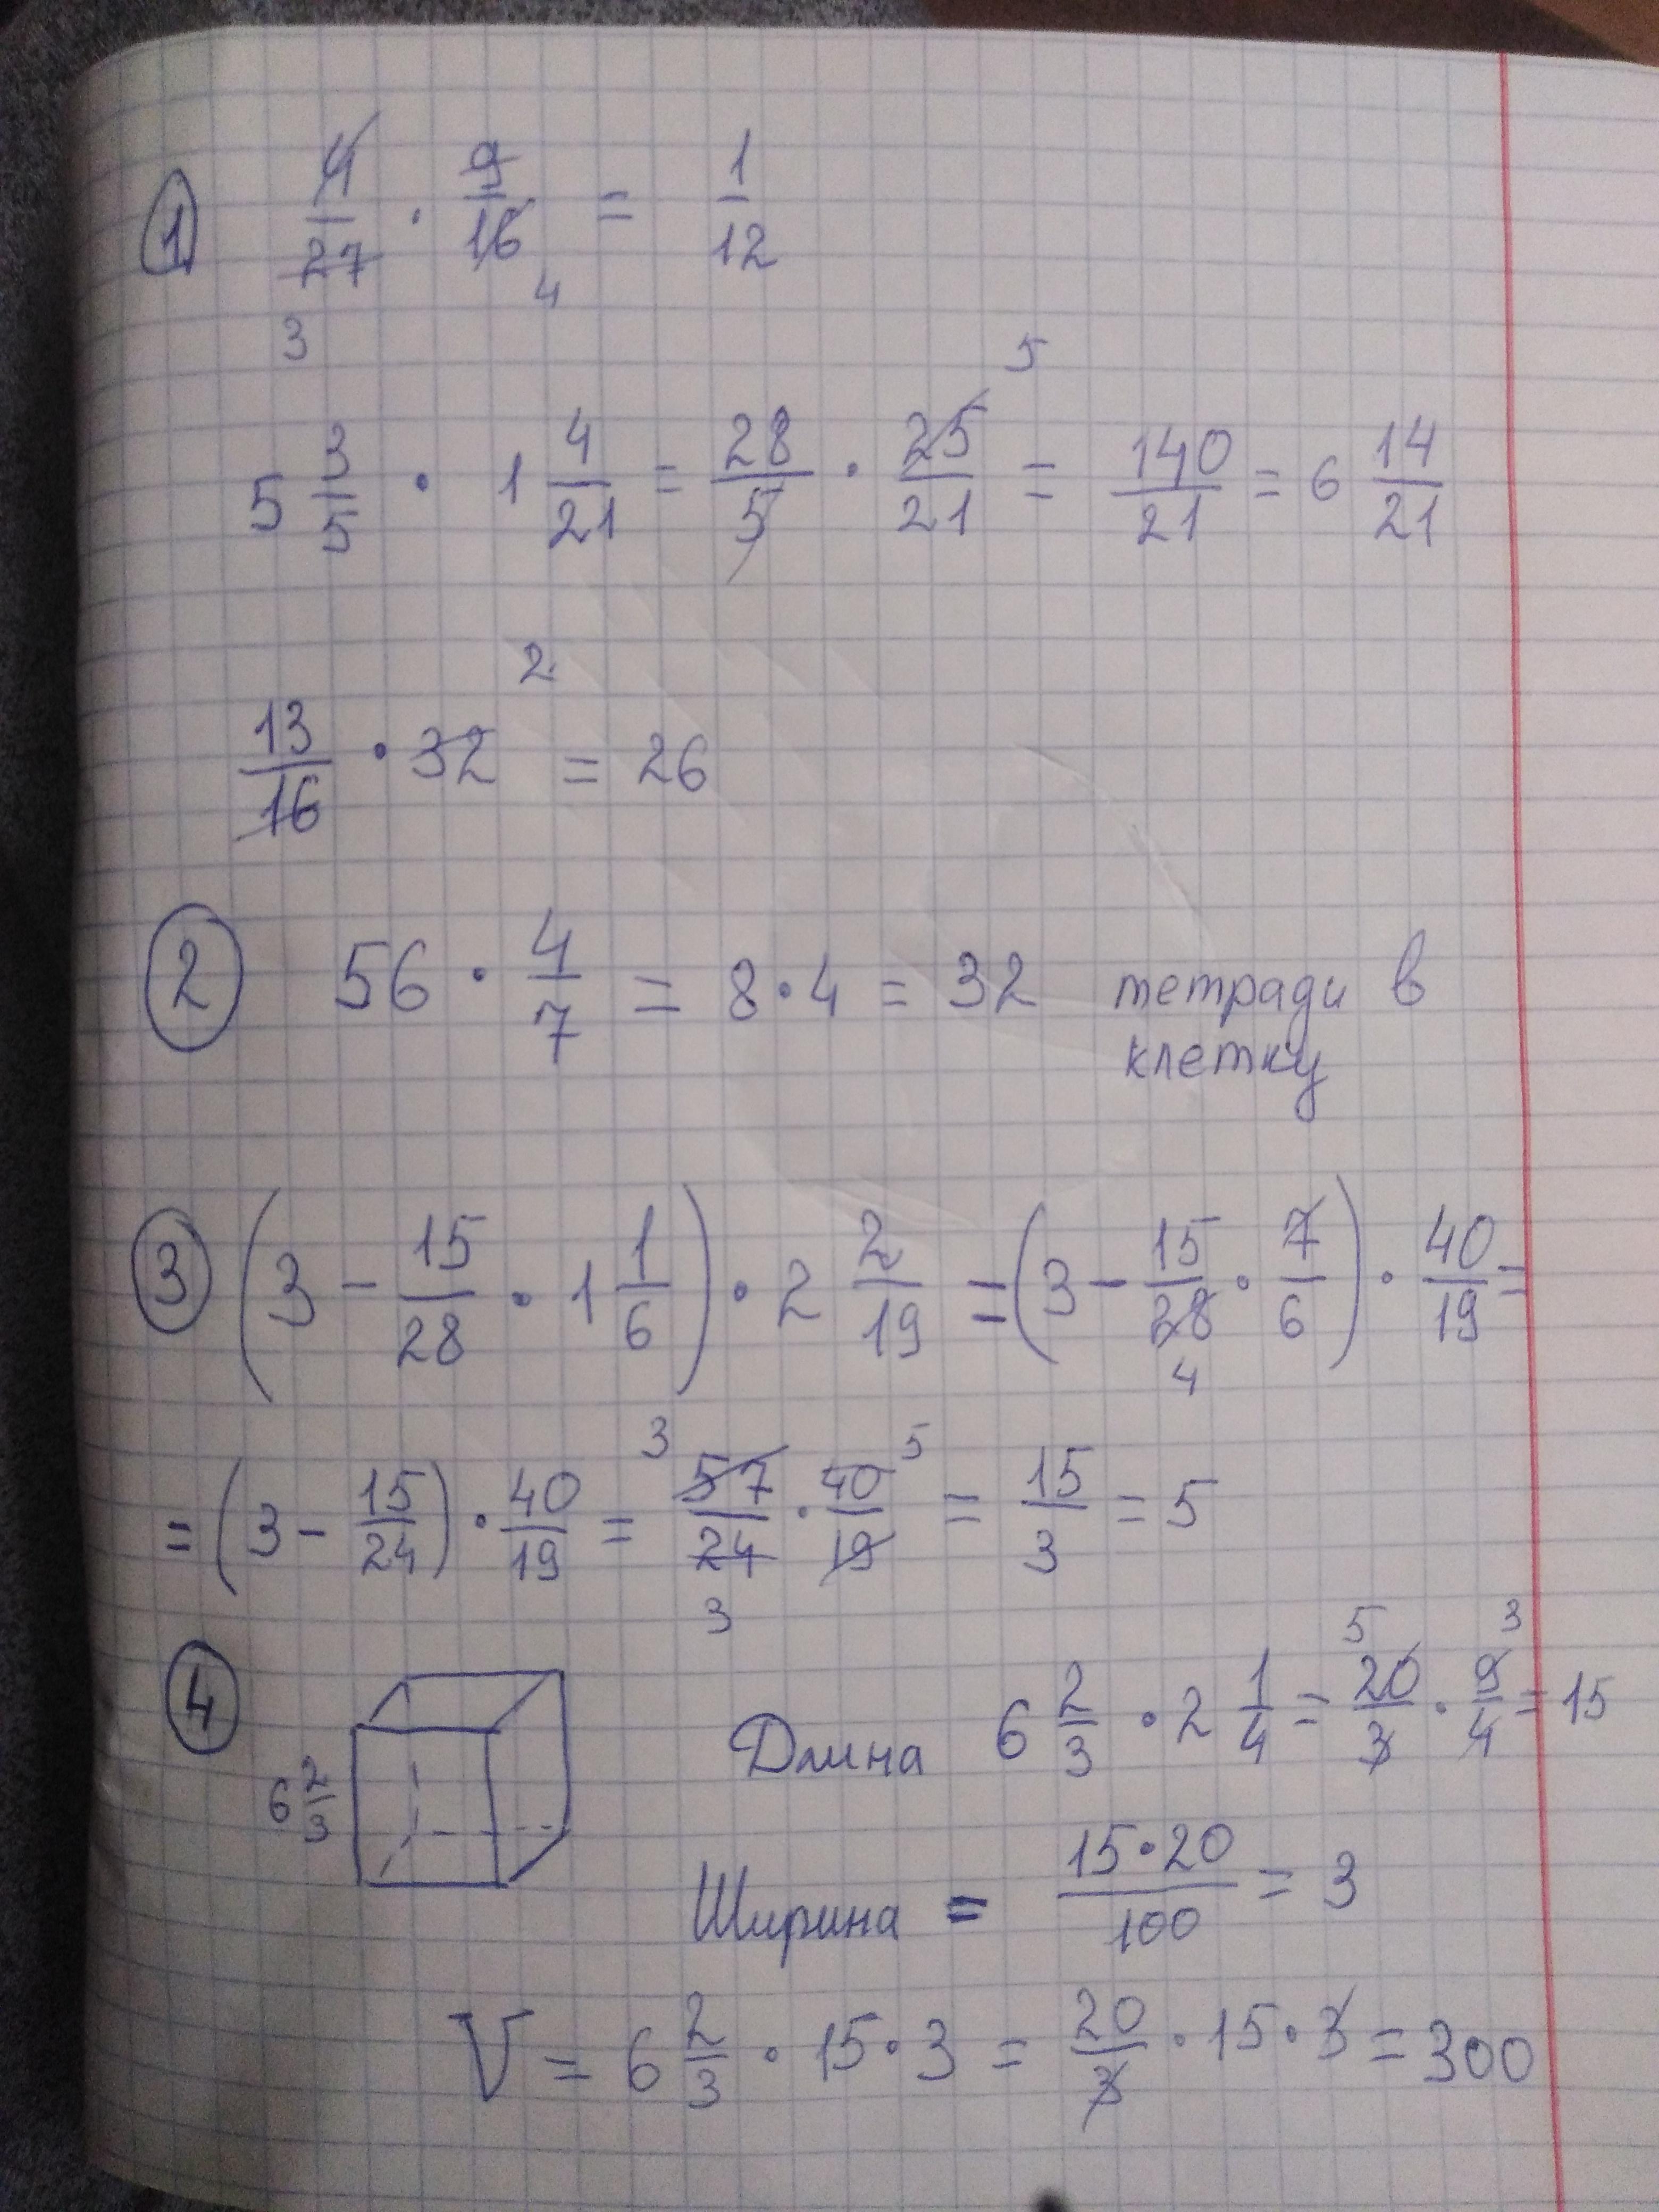 1 4/27 · 9/16 = 1/12
3 4
5 3/5 · 1 4/21 = 28/5 · 25/21 = 140/21 = 6 14/21
5
13/16 · 32 = 26
2
2 56 · 4/7 = 8 · 4 = 32 тетради в
клетку
3 (3 - 15/28 · 1 1/6) · 2 2/19 = (3 - 15/28 · 7/6) · 40/19 =
4
= (3 - 15/24) · 40/19 = 57/24 · 40/19 = 15/3 = 5
3 5
3
4 6 2/3
Длина 6 2/3 · 2 1/4 = 20/3 · 9/4 = 15
5 3
Ширина = 15·20/100 = 3
V = 6 2/3 · 15 · 3 = 20/3 · 15 · 3 = 300